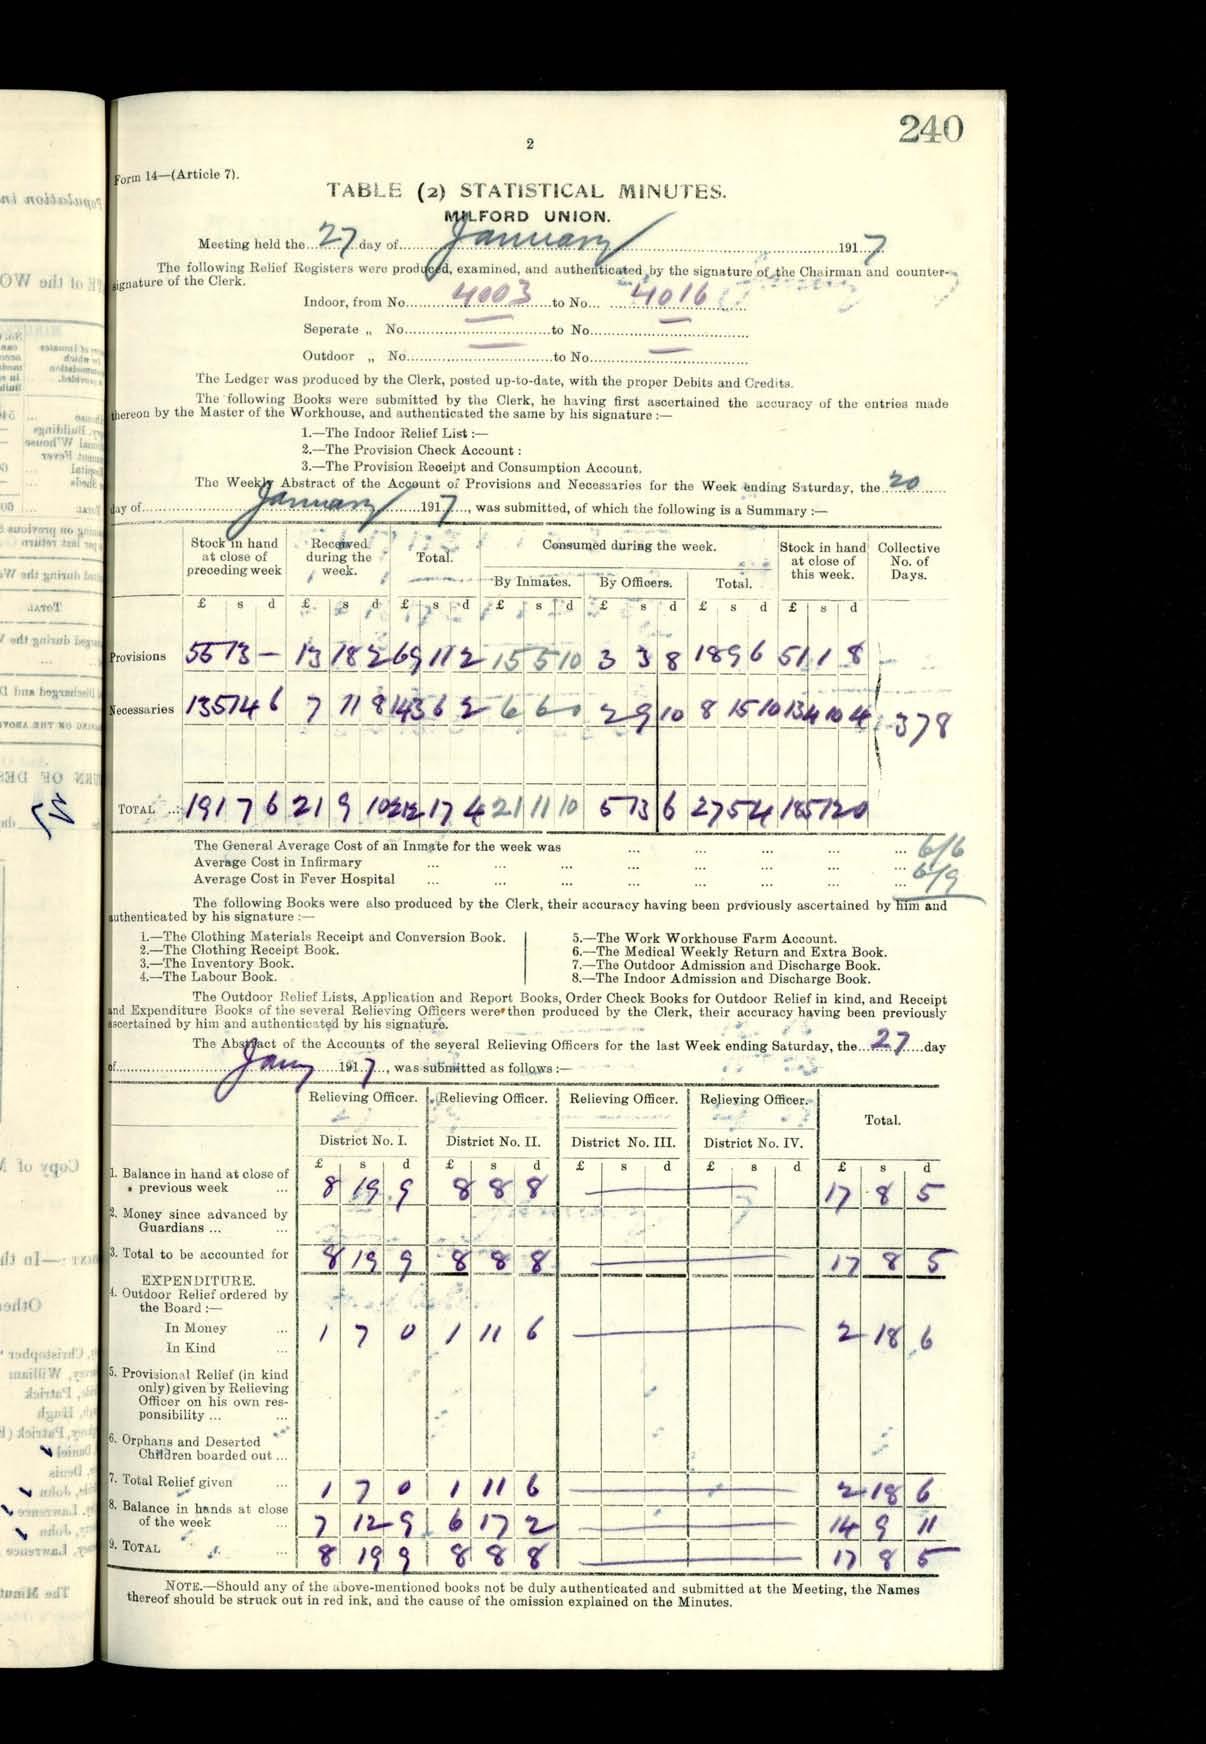 240
2
Form 14—(Article 7).
TABLE (2) STATISTICAL MINUTES.
MILFORD UNION.
Meeting held the 27 day of January 1917
The following Relief Registers were produced, examined, and authenticated by the signature of the Chairman and counter-
signature of the Clerk.
Indoor, from No. 4003 to No. 4016
Seperate „ No. to No.
Outdoor „ No. to No.
The Ledger was produced by the Clerk, posted up-to-date, with the proper Debits and Credits.
The following Books were submitted by the Clerk, he having first ascertained the accuracy of the entries made
thereon by the Master of the Workhouse, and authenticated the same by his signature :—
1.—The Indoor Relief List :—
2.—The Provision Check Account :
3.—The Provision Receipt and Consumption Account.
The Weekly Abstract of the Account of Provisions and Necessaries for the Week ending Saturday, the 20
day of January 1917, was submitted, of which the following is a Summary :—
Stock in hand at close of preceding week Received during the week. Total. Consumed during the week. Stock in hand at close of this week. Collective No. of Days.
By Inmates. By Officers. Total.
£ s d £ s d £ s d £ s d £ s d £ s d £ s d
Provisions 55 13 — 13 18 2 69 11 2 15 5 10 3 3 8 18 9 6 51 1 8
Necessaries 135 14 6 7 11 8 143 6 2 6 6 0 2 9 10 8 15 10 134 10 4 378
TOTAL 191 7 6 21 9 10 212 17 4 21 11 10 5 13 6 27 5 4 185 12 0
The General Average Cost of an Inmate for the week was ... ... ... ... ... 6/6
Average Cost in Infirmary ... ... ... ... ... ... ... ... 6/9
Average Cost in Fever Hospital ... ... ... ... ... ... ... ...
The following Books were also produced by the Clerk, their accuracy having been previously ascertained by him and
authenticated by his signature :—
1.—The Clothing Materials Receipt and Conversion Book.
2.—The Clothing Receipt Book.
3.—The Inventory Book.
4.—The Labour Book.
5.—The Work Workhouse Farm Account.
6.—The Medical Weekly Return and Extra Book.
7.—The Outdoor Admission and Discharge Book.
8.—The Indoor Admission and Discharge Book.
The Outdoor Relief Lists, Application and Report Books, Order Check Books for Outdoor Relief in kind, and Receipt
and Expenditure Books of the several Relieving Officers were then produced by the Clerk, their accuracy having been previously
ascertained by him and authenticated by his signature.
The Abstract of the Accounts of the several Relieving Officers for the last Week ending Saturday, the 27 day
of Jany 1917, was submitted as follows :—
Relieving Officer. Relieving Officer. Relieving Officer. Relieving Officer. Total.
District No. I. District No. II. District No. III. District No. IV.
£ s d £ s d £ s d £ s d £ s d
1. Balance in hand at close of
previous week ... 8 19 9 8 8 8 — 17 8 5
2. Money since advanced by
Guardians ... ...
3. Total to be accounted for 8 19 9 8 8 8 — 17 8 5
EXPENDITURE.
4. Outdoor Relief ordered by
the Board :—
In Money ... 1 7 0 1 11 6 — 2 18 6
In Kind ...
5. Provisional Relief (in kind
only) given by Relieving
Officer on his own res-
ponsibility ... ...
6. Orphans and Deserted
Children boarded out ...
7. Total Relief given ... 1 7 0 1 11 6 — 2 18 6
8. Balance in hands at close
of the week ... 7 12 9 6 17 2 — 14 9 11
9. TOTAL ... 8 19 9 8 8 8 — 17 8 5
NOTE.—Should any of the above-mentioned books not be duly authenticated and submitted at the Meeting, the Names
thereof should be struck out in red ink, and the cause of the omission explained on the Minutes.